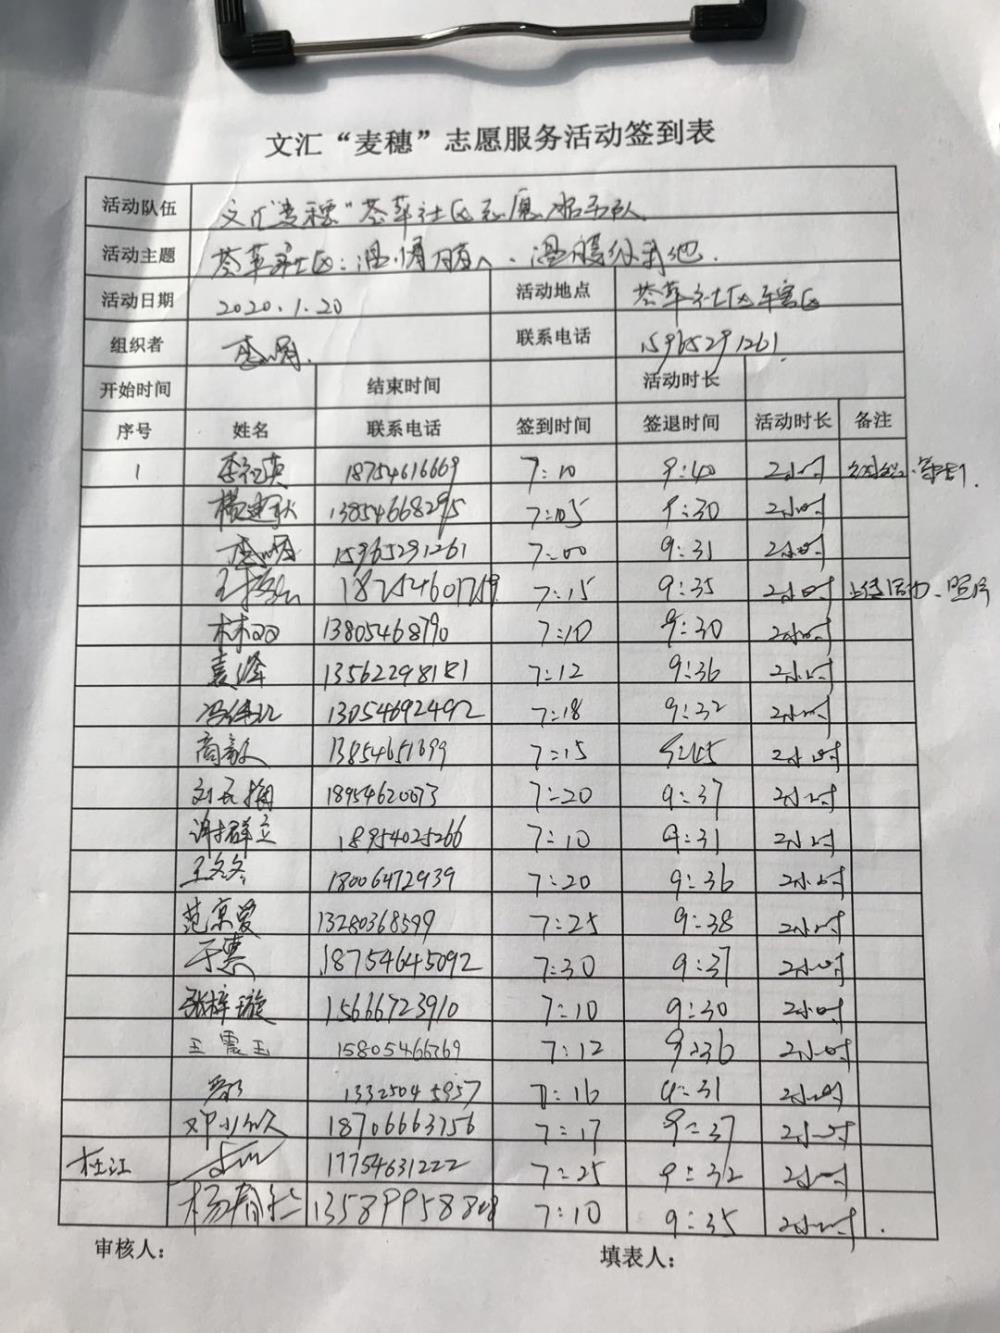 文汇“麦穗”志愿服务活动签到表
活动队伍 文汇“麦穗”荟萃社区志愿服务队
活动主题 荟萃社区：温情
活动日期 2020.1.20 活动地点 荟萃社区辖区
组织者 联系电话 15965291261
开始时间 结束时间 活动时长
序号 姓名 联系电话 签到时间 签退时间 活动时长 备注
1 18754616669 7:10 9:40 2小时
13854668295 7:05 9:30 2小时
15965291261 7:00 9:31 2小时
7:15 9:35 2小时 照片
林双 13805468790 7:10 9:30 2小时
袁峰 13562298181 7:12 9:36 2小时
13054692492 7:18 9:32 2小时
商毅 13854651699 7:15 2小时
18954620073 7:20 9:37 2小时
谢群立 18954025266 7:10 9:31 2小时
王冬冬 18006472939 7:20 9:36 2小时
范京爱 13280368599 7:25 9:38 2小时
于惠 18754645092 7:30 9:37 2小时
张梓璇 15666723910 7:10 9:30 2小时
王震玉 15805466769 7:12 9:36 2小时
13325045957 7:16 9:31 2小时
邓小 18706663756 7:17 9:37 2小时
杜江 17754631222 7:25 9:32 2小时
杨春仁 13589958808 7:10 9:35 2小时
审核人： 填表人：